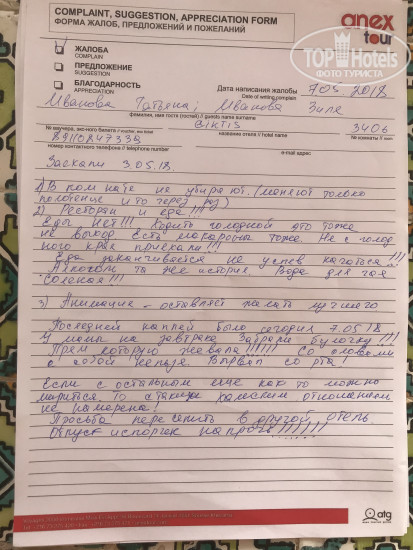 COMPLAINT, SUGGESTION, APPRECIATION FORM
ФОРМА ЖАЛОБ, ПРЕДЛОЖЕНИЙ И ПОЖЕЛАНИЙ
anex
tour
TopHotels
ФОТО ТУРИСТА
ЖАЛОБА
COMPLAIN
ПРЕДЛОЖЕНИЕ
SUGGESTION
БЛАГОДАРНОСТЬ
APPRECIATION
Дата написания жалобы
Date of writing complain
7.05.2018
Иванова Татьяна; Иванова Зиля
фамилия, имя гостя (гостей) // guests name surname
CIKTIS 3406
№ ваучера, эко-ного билета // voucher, eco ticket название отеля // hotel name № комнаты // room
89110847338
номер контактного телефона // telephone number e-mail адрес
Заехали 3.05.18.
1) В комнате не убирают. (меняют только
полотенце и то через раз)
2) Ресторан и еда!!!
Еды нет!!! Ходить голодной это тоже
не выход. Есть макароны тоже. Не с голод
ного края приехали!!!
Еда заканчивается не успев начаться!!!
Алкоголь та же история. Вода для чая
Соленая!!!
3) Анимация - оставляет желать лучшего
Последней каплей было сегодня 7.05.18
У мамы на завтраке забрали булочку!!!
Прям которую жевала!!!!!! Со словами
с собой нельзя. Вырвал со рта!
Если с остальным еще как то можно
мириться. То с таким хамским отношением
не намерена!
Просьба переселить в другой отель.
Отпуск испорчен напрочь!!!!!!!
atg